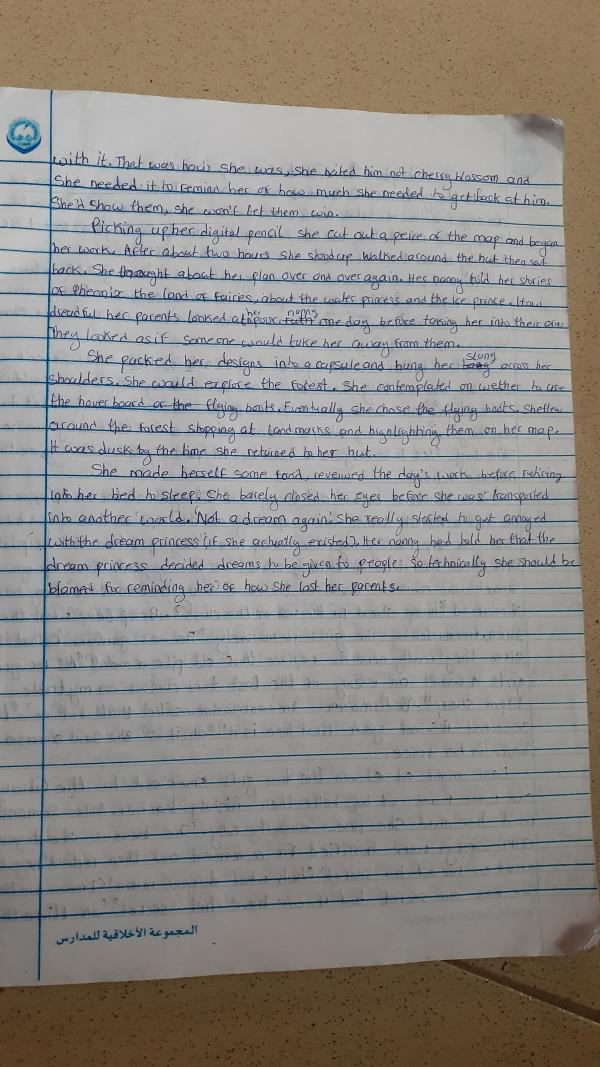 with it. That was how she was, she hated him not cherry blossom and
she needed it to remind her of how much she needed to get back at him.
She'd show them, she won't let them win.
Picking up her digital pencil she cut out a peice of the map and began
her work. After about two hours she stoodup walked around the hut then sat
back. She thought about her plan over and over again. Her nanny told her stories
of Pheonix the land of fairies, about the water princess and the ice prince. How
dreadful her parents looked at her nanny one day before taking her into their arms
They looked as if someone would take her away from them.
She packed her designs into a capsule and hung her slung across her
shoulders. She would explore the forest. She contemplated on wether to use
the hover board or the flying boots. Eventually she chose the flying boots. She flew
around the forest stopping at landmarks and highlighting them on her map.
It was dusk by the time she returned to her hut.
She made herself some food, reveiwed the day's work before retiring
into her bed to sleep. She barely closed her eyes before she was transported
into another world. 'Not a dream again'. She really started to get annoyed
with the dream princess (if she actually existed). Her nanny had told her that the
dream princess decided dreams to be given to people so technically she should be
blamed for reminding her of how she lost her parents.
المجموعة الأخلاقية للمدارس